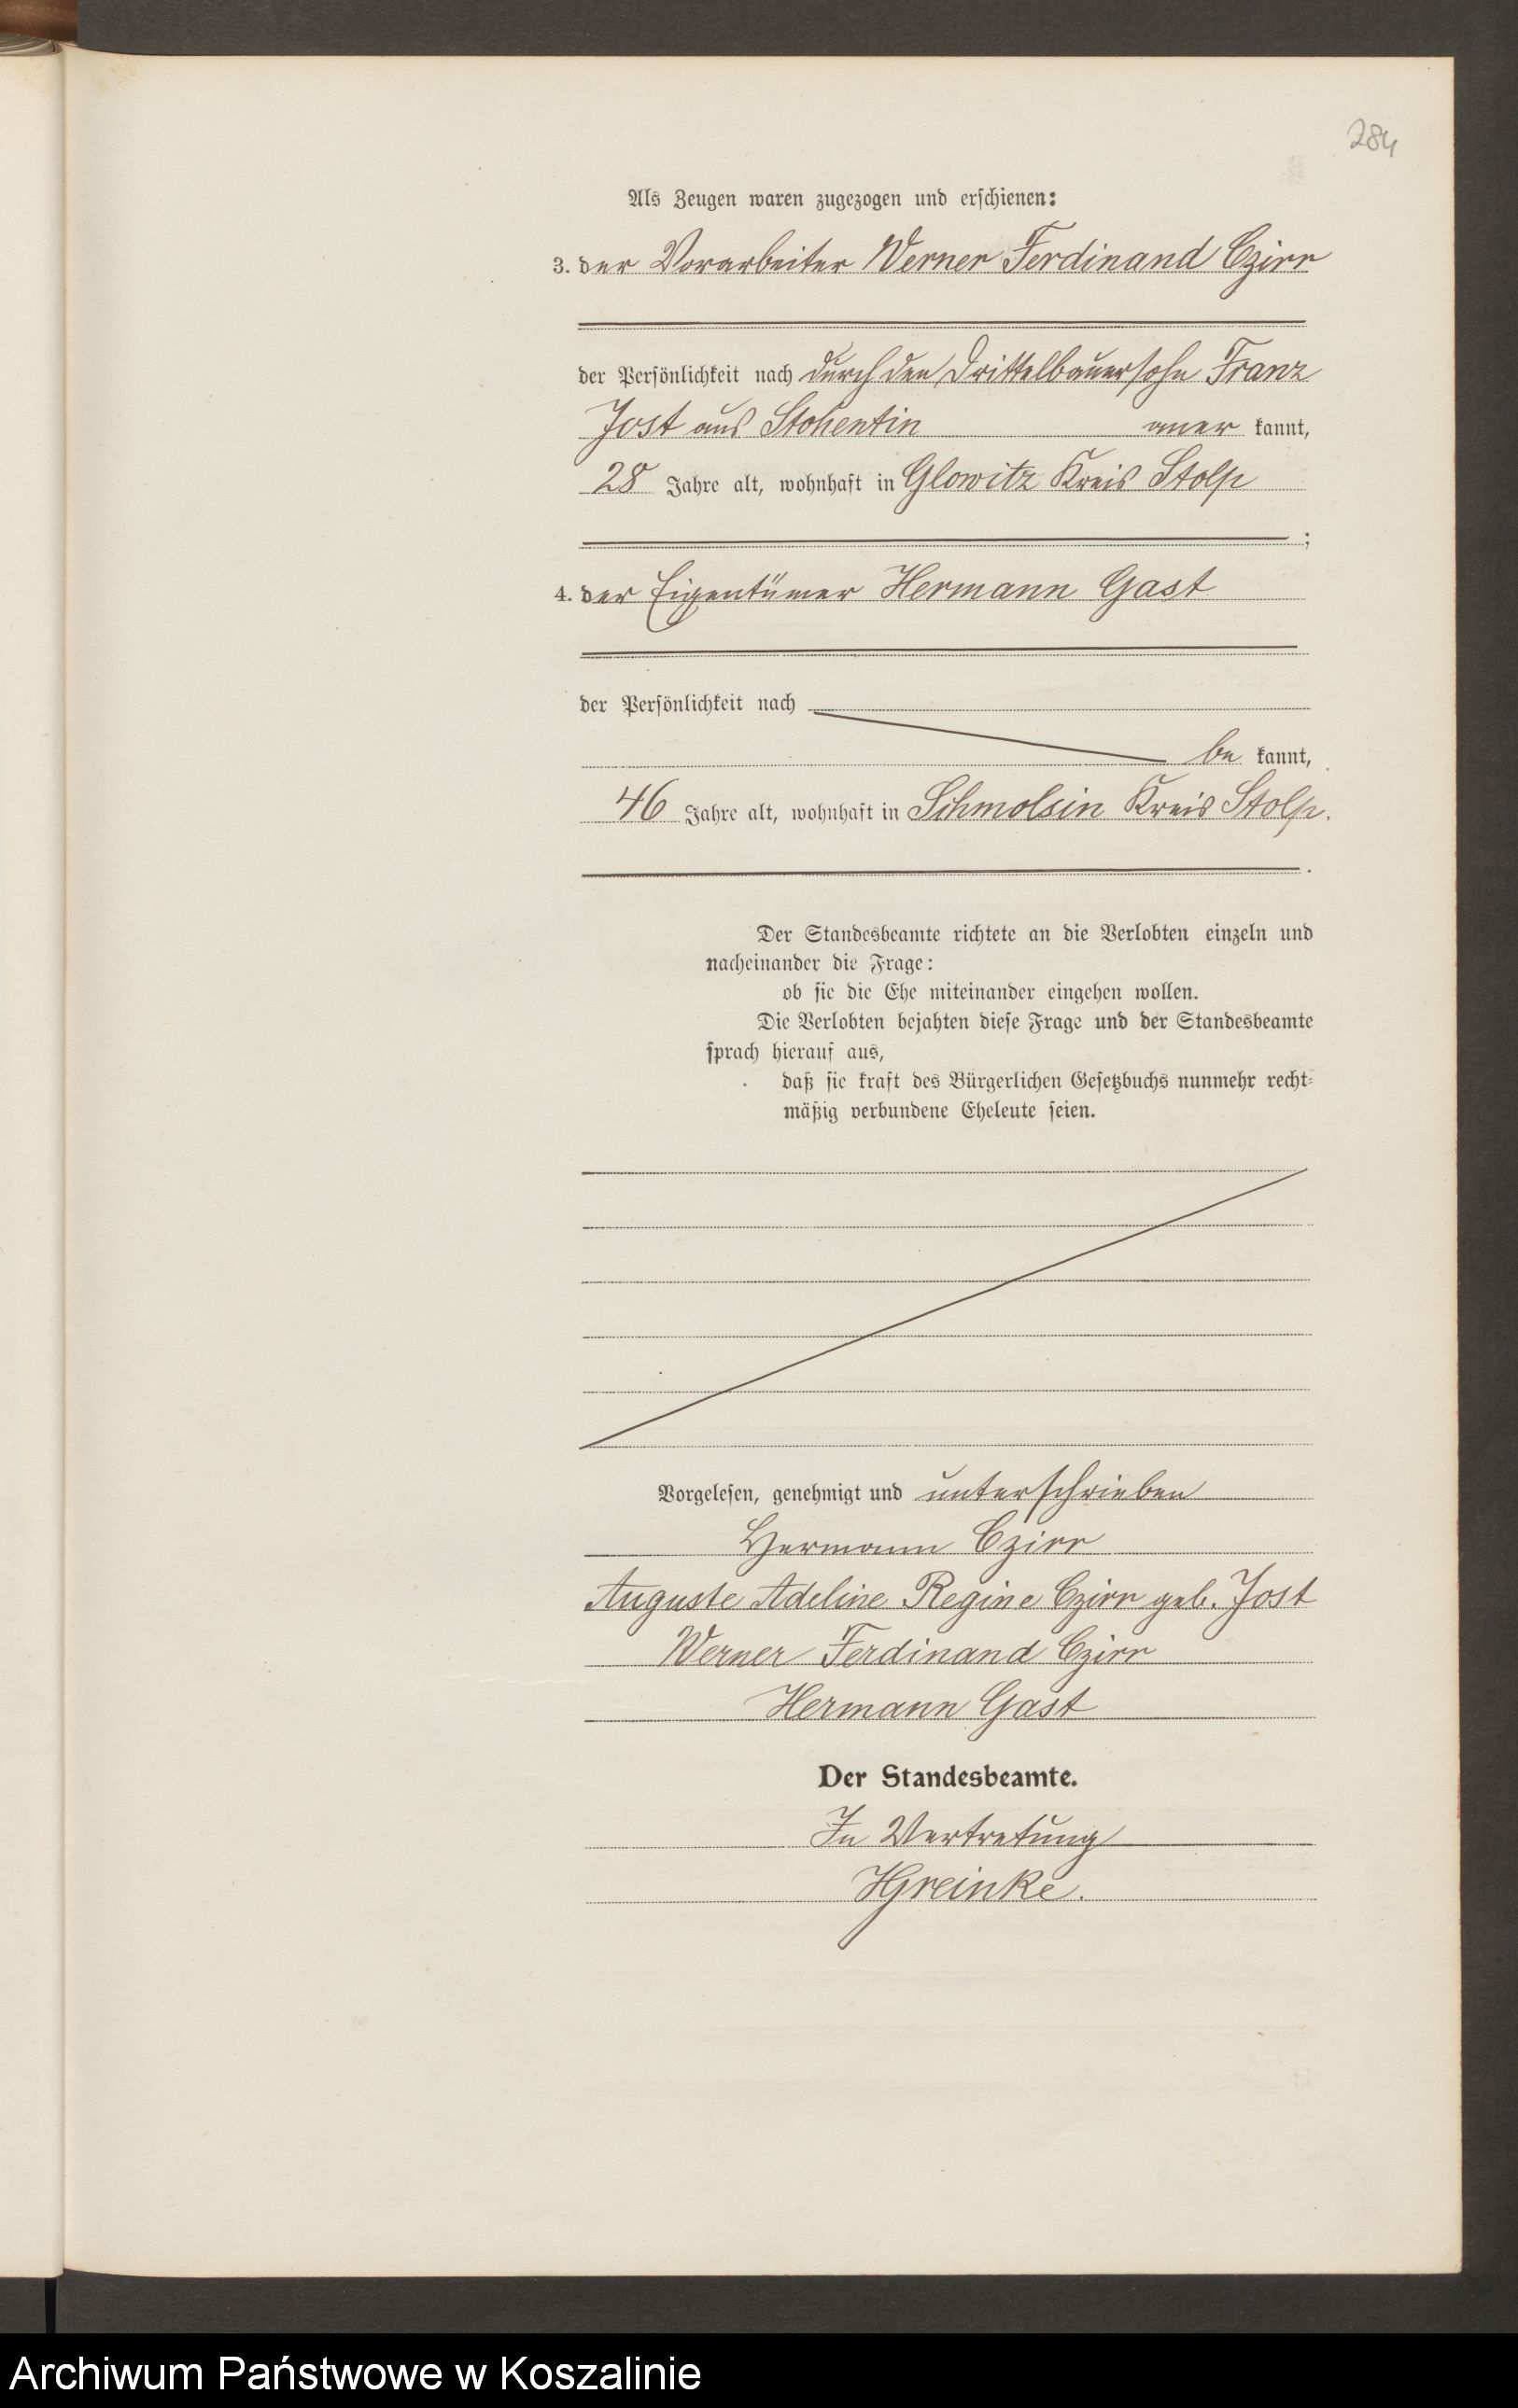 284
Als Zeugen waren zugezogen und erschienen:
3. der Vorarbeiter Werner Ferdinand Czirr
der Persönlichkeit nach durch den Drittelbauersohn Franz
Jost aus Stohentin aner kannt,
28 Jahre alt, wohnhaft in Glowitz Kreis Stolp
;
4. der Eigentümer Hermann Gast
der Persönlichkeit nach
be kannt,
46 Jahre alt, wohnhaft in Schmolsin Kreis Stolp.
.
Der Standesbeamte richtete an die Verlobten einzeln und
nacheinander die Frage:
ob sie die Ehe miteinander eingehen wollen.
Die Verlobten bejahten diese Frage und der Standesbeamte
sprach hierauf aus,
daß sie kraft des Bürgerlichen Gesetzbuchs nunmehr recht-
mäßig verbundene Eheleute seien.
Vorgelesen, genehmigt und unterschrieben
Hermann Czirr
Auguste Adeline Regine Czirr geb. Jost
Werner Ferdinand Czirr
Hermann Gast
Der Standesbeamte.
In Vertretung
HGreinke.
Archiwum Państwowe w Koszalinie